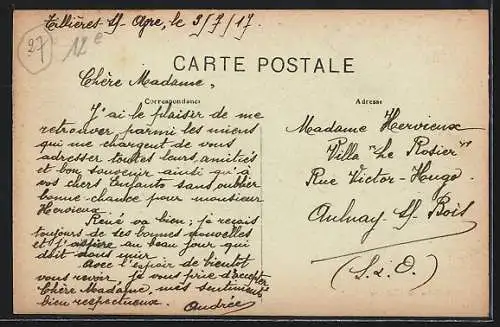 Tillières-s/-Avre, le 3/7/17.
27
12e
CARTE POSTALE
Chère Madame,
Correspondance
Adresse
J'ai le plaisir de me
retrouver parmi les miens
qui me chargent de vous
adresser toutes leurs amitiés
et bon souvenir ainsi qu'à
vos chers Enfants sans oublier
bonne chance pour monsieur
Hervieux
René va bien ; je reçais
toujours de ses bonnes nouvelles
et j'aspire au beau jour qui
doit nous unir.
Avec l'espoir de bientôt
vous revoir, je vous prie d'accepter
Chère Madame, mes sentiments
bien respectueux. Andrée
Madame Hervieux
Villa "Le Rosier"
Rue Victor-Hugo.
Aulnay s/ Bois
(S. & O.)